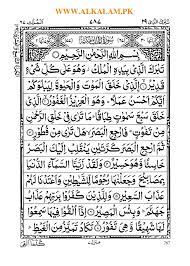 WWW.ALKALAM.PK
بِسْمِ اللّٰهِ الرَّحْمٰنِ الرَّحِیْمِ
تَبٰرَكَ الَّذِیْ بِیَدِهِ الْمُلْكُ وَهُوَ عَلٰی كُلِّ شَیْءٍ
قَدِیْرُ الَّذِیْ خَلَقَ الْمَوْتَ وَالْحَیٰوةَ لِیَبْلُوَكُمْ
اَیُّكُمْ اَحْسَنُ عَمَلًا وَهُوَ الْعَزِیْزُ الْغَفُوْرُ الَّذِیْ
خَلَقَ سَبْعَ سَمٰوٰتٍ طِبَاقًا مَا تَرٰی فِیْ خَلْقِ الرَّحْمٰنِ
مِنْ تَفٰوُتٍ فَارْجِعِ الْبَصَرَ هَلْ تَرٰی مِنْ فُطُوْرٍ
ثُمَّ ارْجِعِ الْبَصَرَ كَرَّتَیْنِ یَنْقَلِبْ اِلَیْكَ الْبَصَرُ
خَاسِئًا وَّهُوَ حَسِیْرٌ وَلَقَدْ زَیَّنَّا السَّمَآءَ الدُّنْیَا
بِمَصَابِیْحَ وَجَعَلْنٰهَا رُجُوْمًا لِّلشَّیٰطِیْنِ وَاَعْتَدْنَا لَهُمْ
عَذَابَ السَّعِیْرِ وَلِلَّذِیْنَ كَفَرُوْا بِرَبِّهِمْ عَذَابُ جَهَنَّمَ
وَبِئْسَ الْمَصِیْرُ اِذَا اُلْقُوْا فِیْهَا سَمِعُوْا لَهَا
شَهِیْقًا وَّهِیَ تَفُوْرُ تَكَادُ تَمَیَّزُ مِنَ الْغَیْظِ